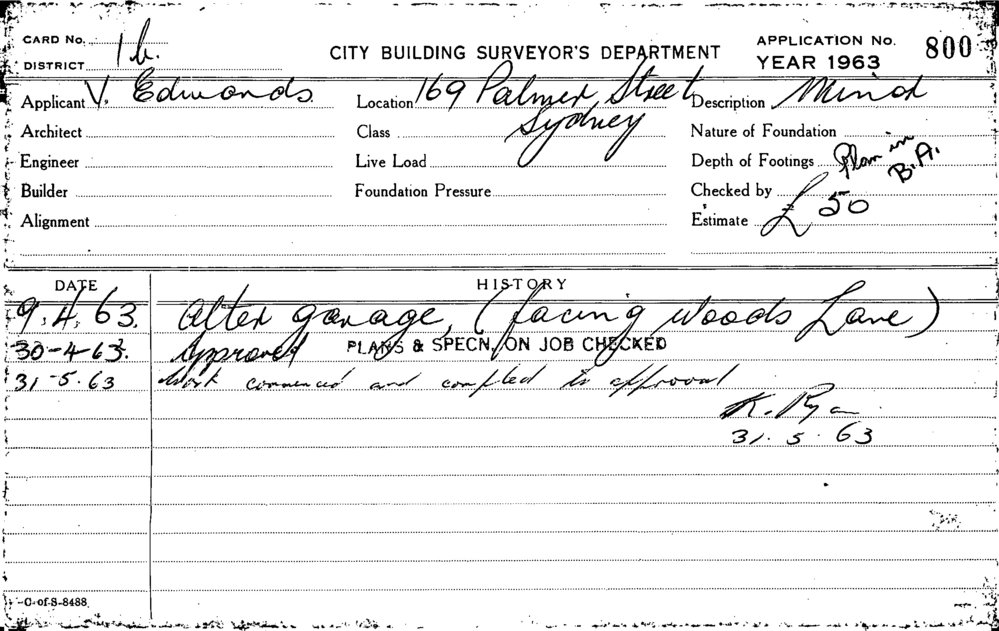 CARD No.
DISTRICT 1b.
CITY BUILDING SURVEYOR'S DEPARTMENT
APPLICATION No. 800
YEAR 1963
Applicant V. Edmonds.
Location 169 Palmer Street
Sydney
Description Minor
Architect
Class
Nature of Foundation
Engineer
Live Load
Depth of Footings Plan in
B.A.
Builder
Foundation Pressure
Checked by
Alignment
Estimate £50
DATE HISTORY
9.4.63. Alter garage, (facing Woods Lane)
30-4-63. Approved PLANS & SPECN. ON JOB CHECKED
31-5-63 Work commenced and completed to approval
K. Ryan
31.5.63
C-of-S-8488